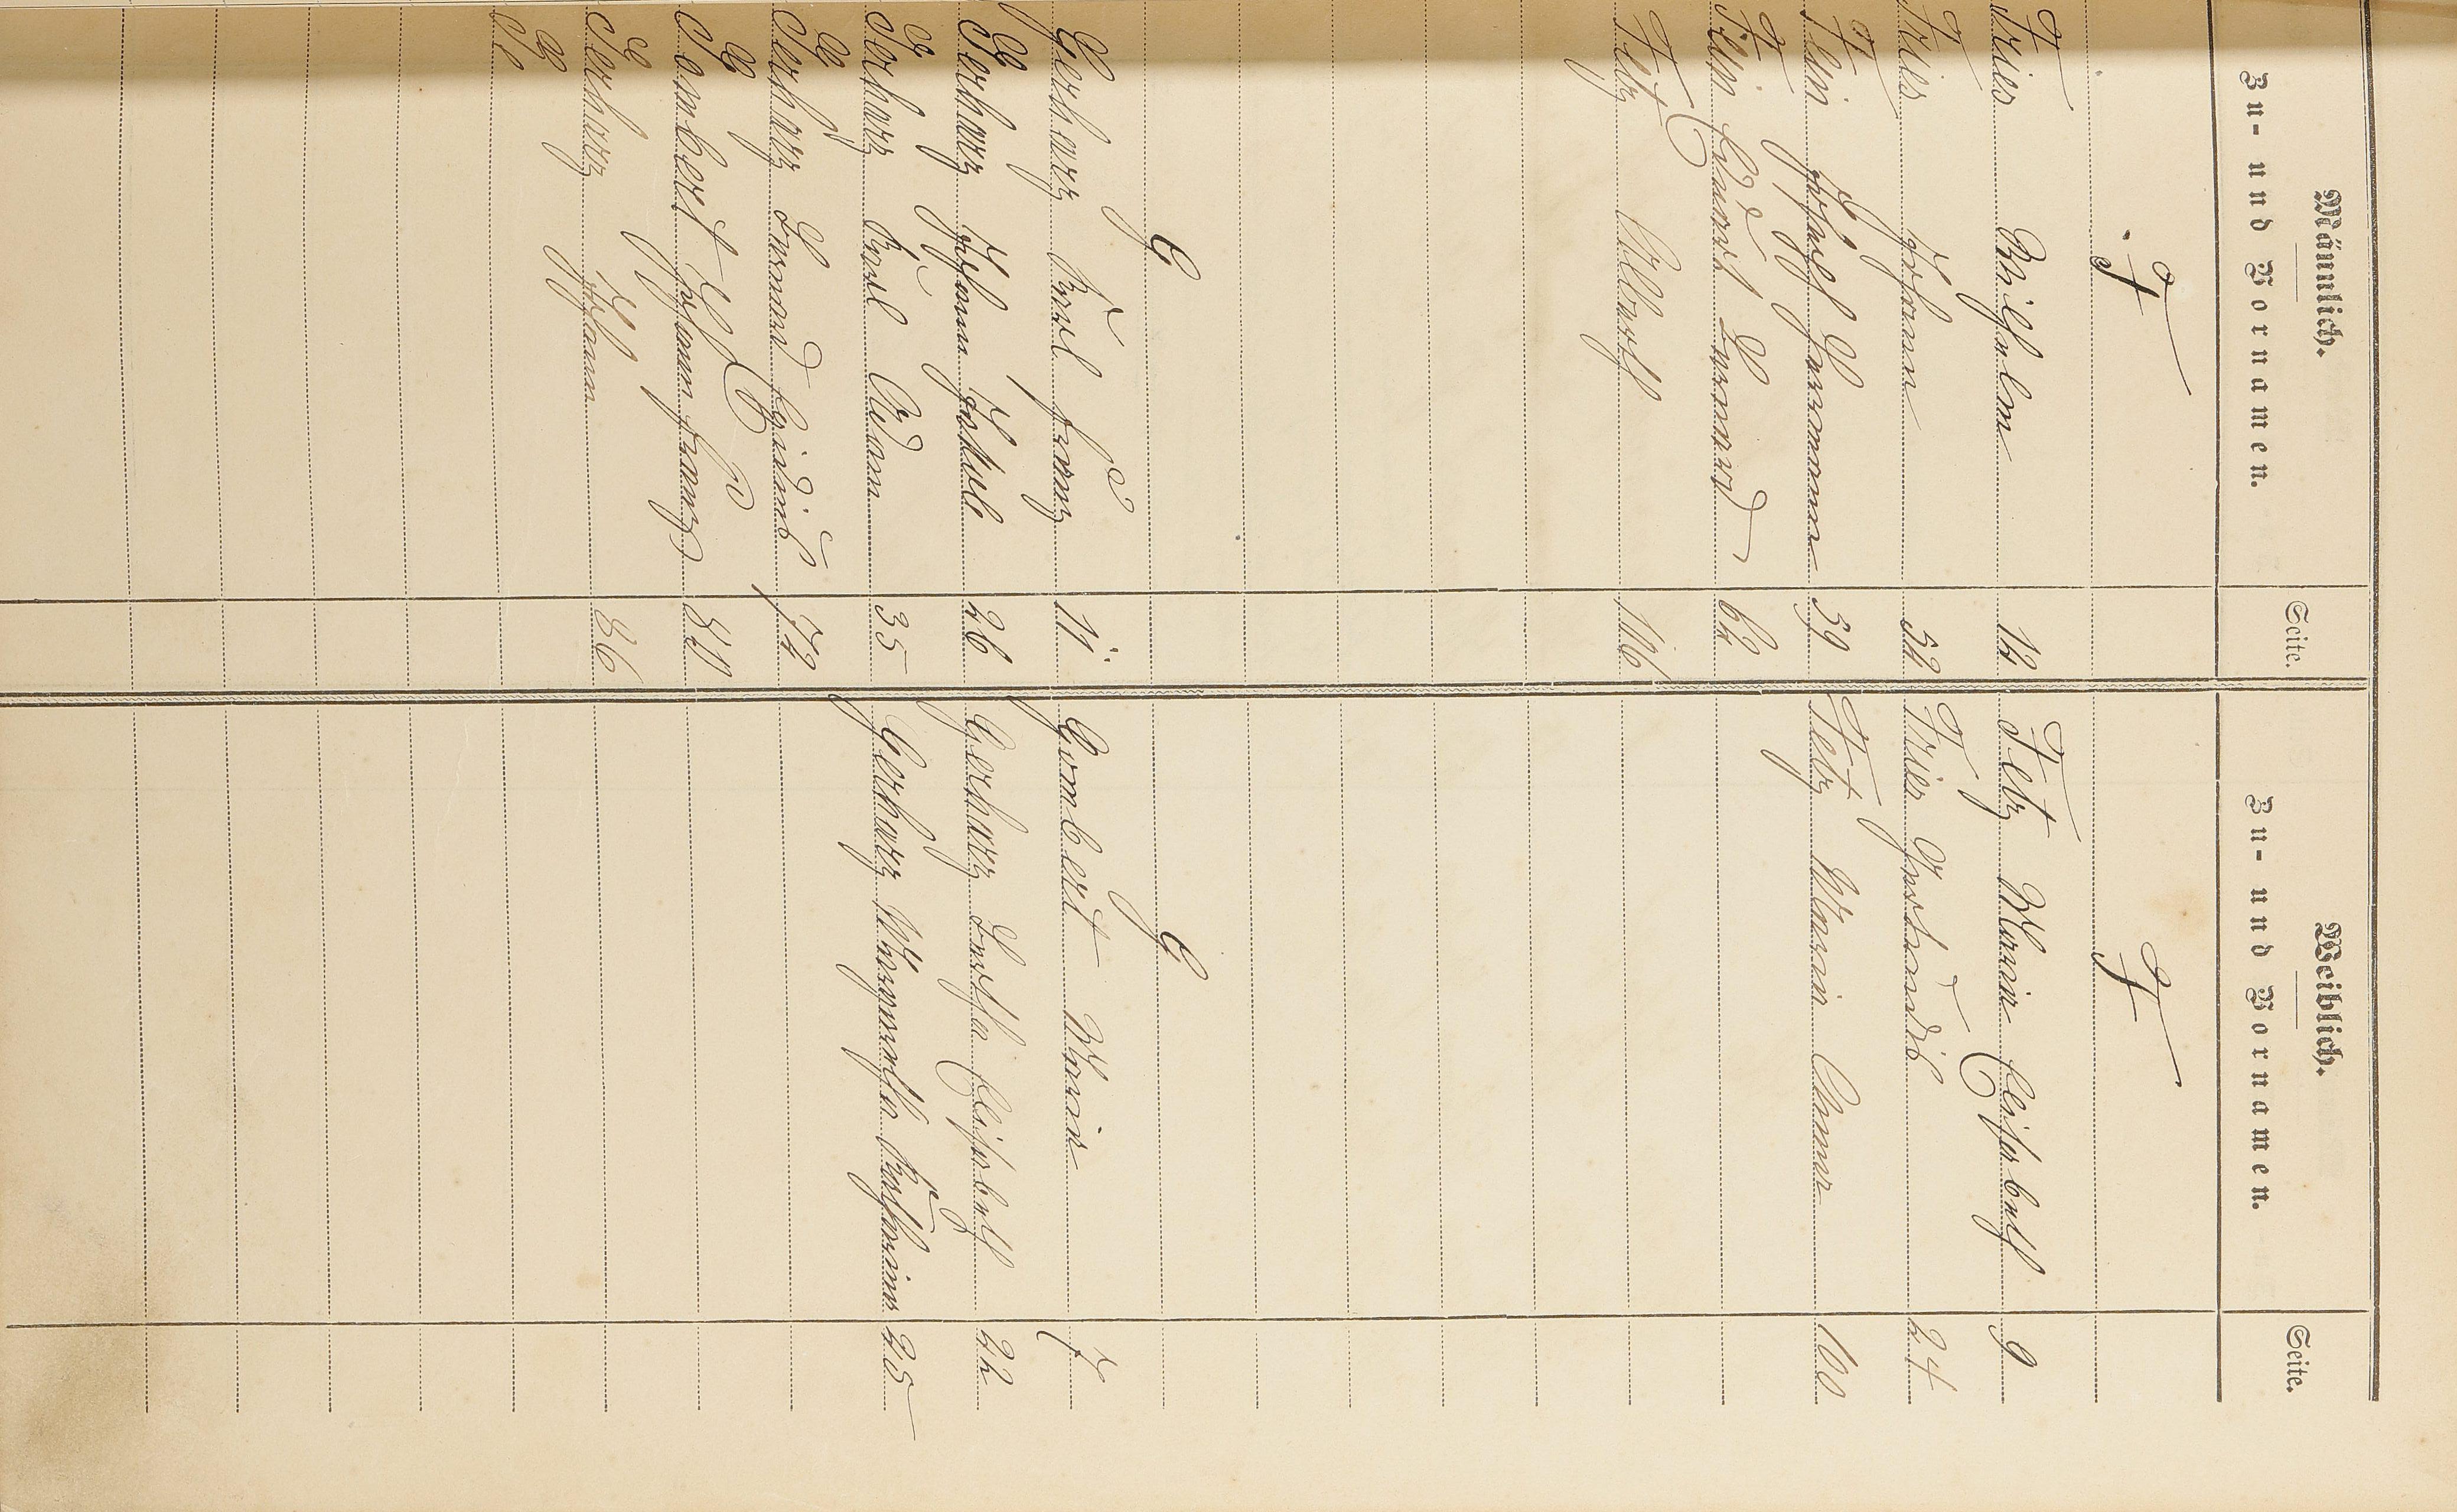 Männlich.
Zu- und Vornamen.
Seite.
F
Fries Wilhelm 12
Fries Johann 52
Flein Joseph Hermann 59
Flein Eduard Bernard 62
Fetz Albert 116
G
Gerharz Karl Franz 11.
Gerharz Johann Jakob 26
Gerharz Karl Adam 35
Gerharz Bernard Egidius 72
Gombert Johann Franz 80
Gerharz Johann 86
Ge
Weiblich.
Zu- und Vornamen.
Seite.
F
Fetz Maria Elisabeth 9
Fries Gertrudis 24
Fetz Maria Anna 100
G
Gombert Maria 7
Gerharz Bertha Elisabeth 22
Gerharz Margaretha Katharina 25